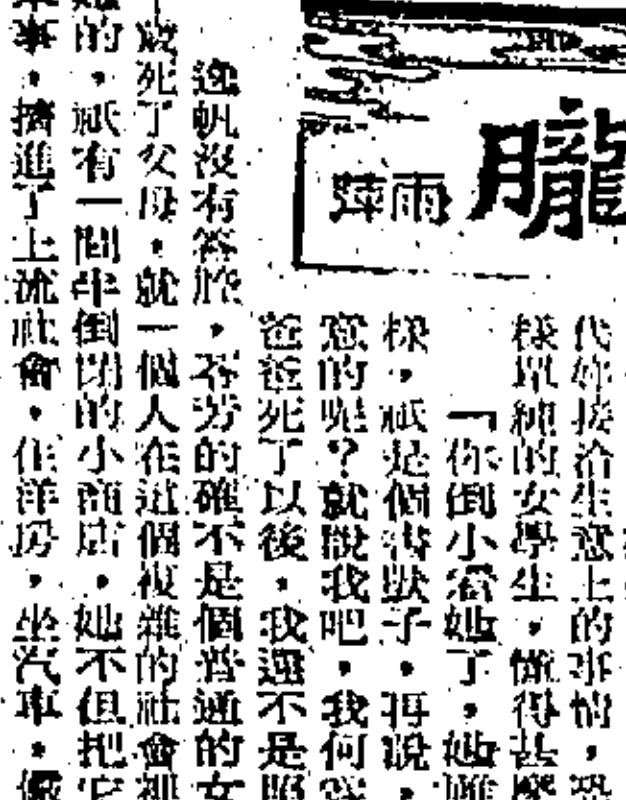 朧
雨萍
代你接洽生意上的事情，恐
樣單純的女學生，懂得甚麼
「你倒小看她了，她雖
樣，祇是個書獃子。再說，
意的呢？就說我吧，我何
爸爸死了以後，我還不是照
逸帆沒有答腔，不芳的確不是個普通的女
歲死了父母，就一個人在這個複雜的社會裡
的，祇有一間半倒閉的小商店，她不但把它
事，擠進了上流社會，住洋房，坐汽車，儼